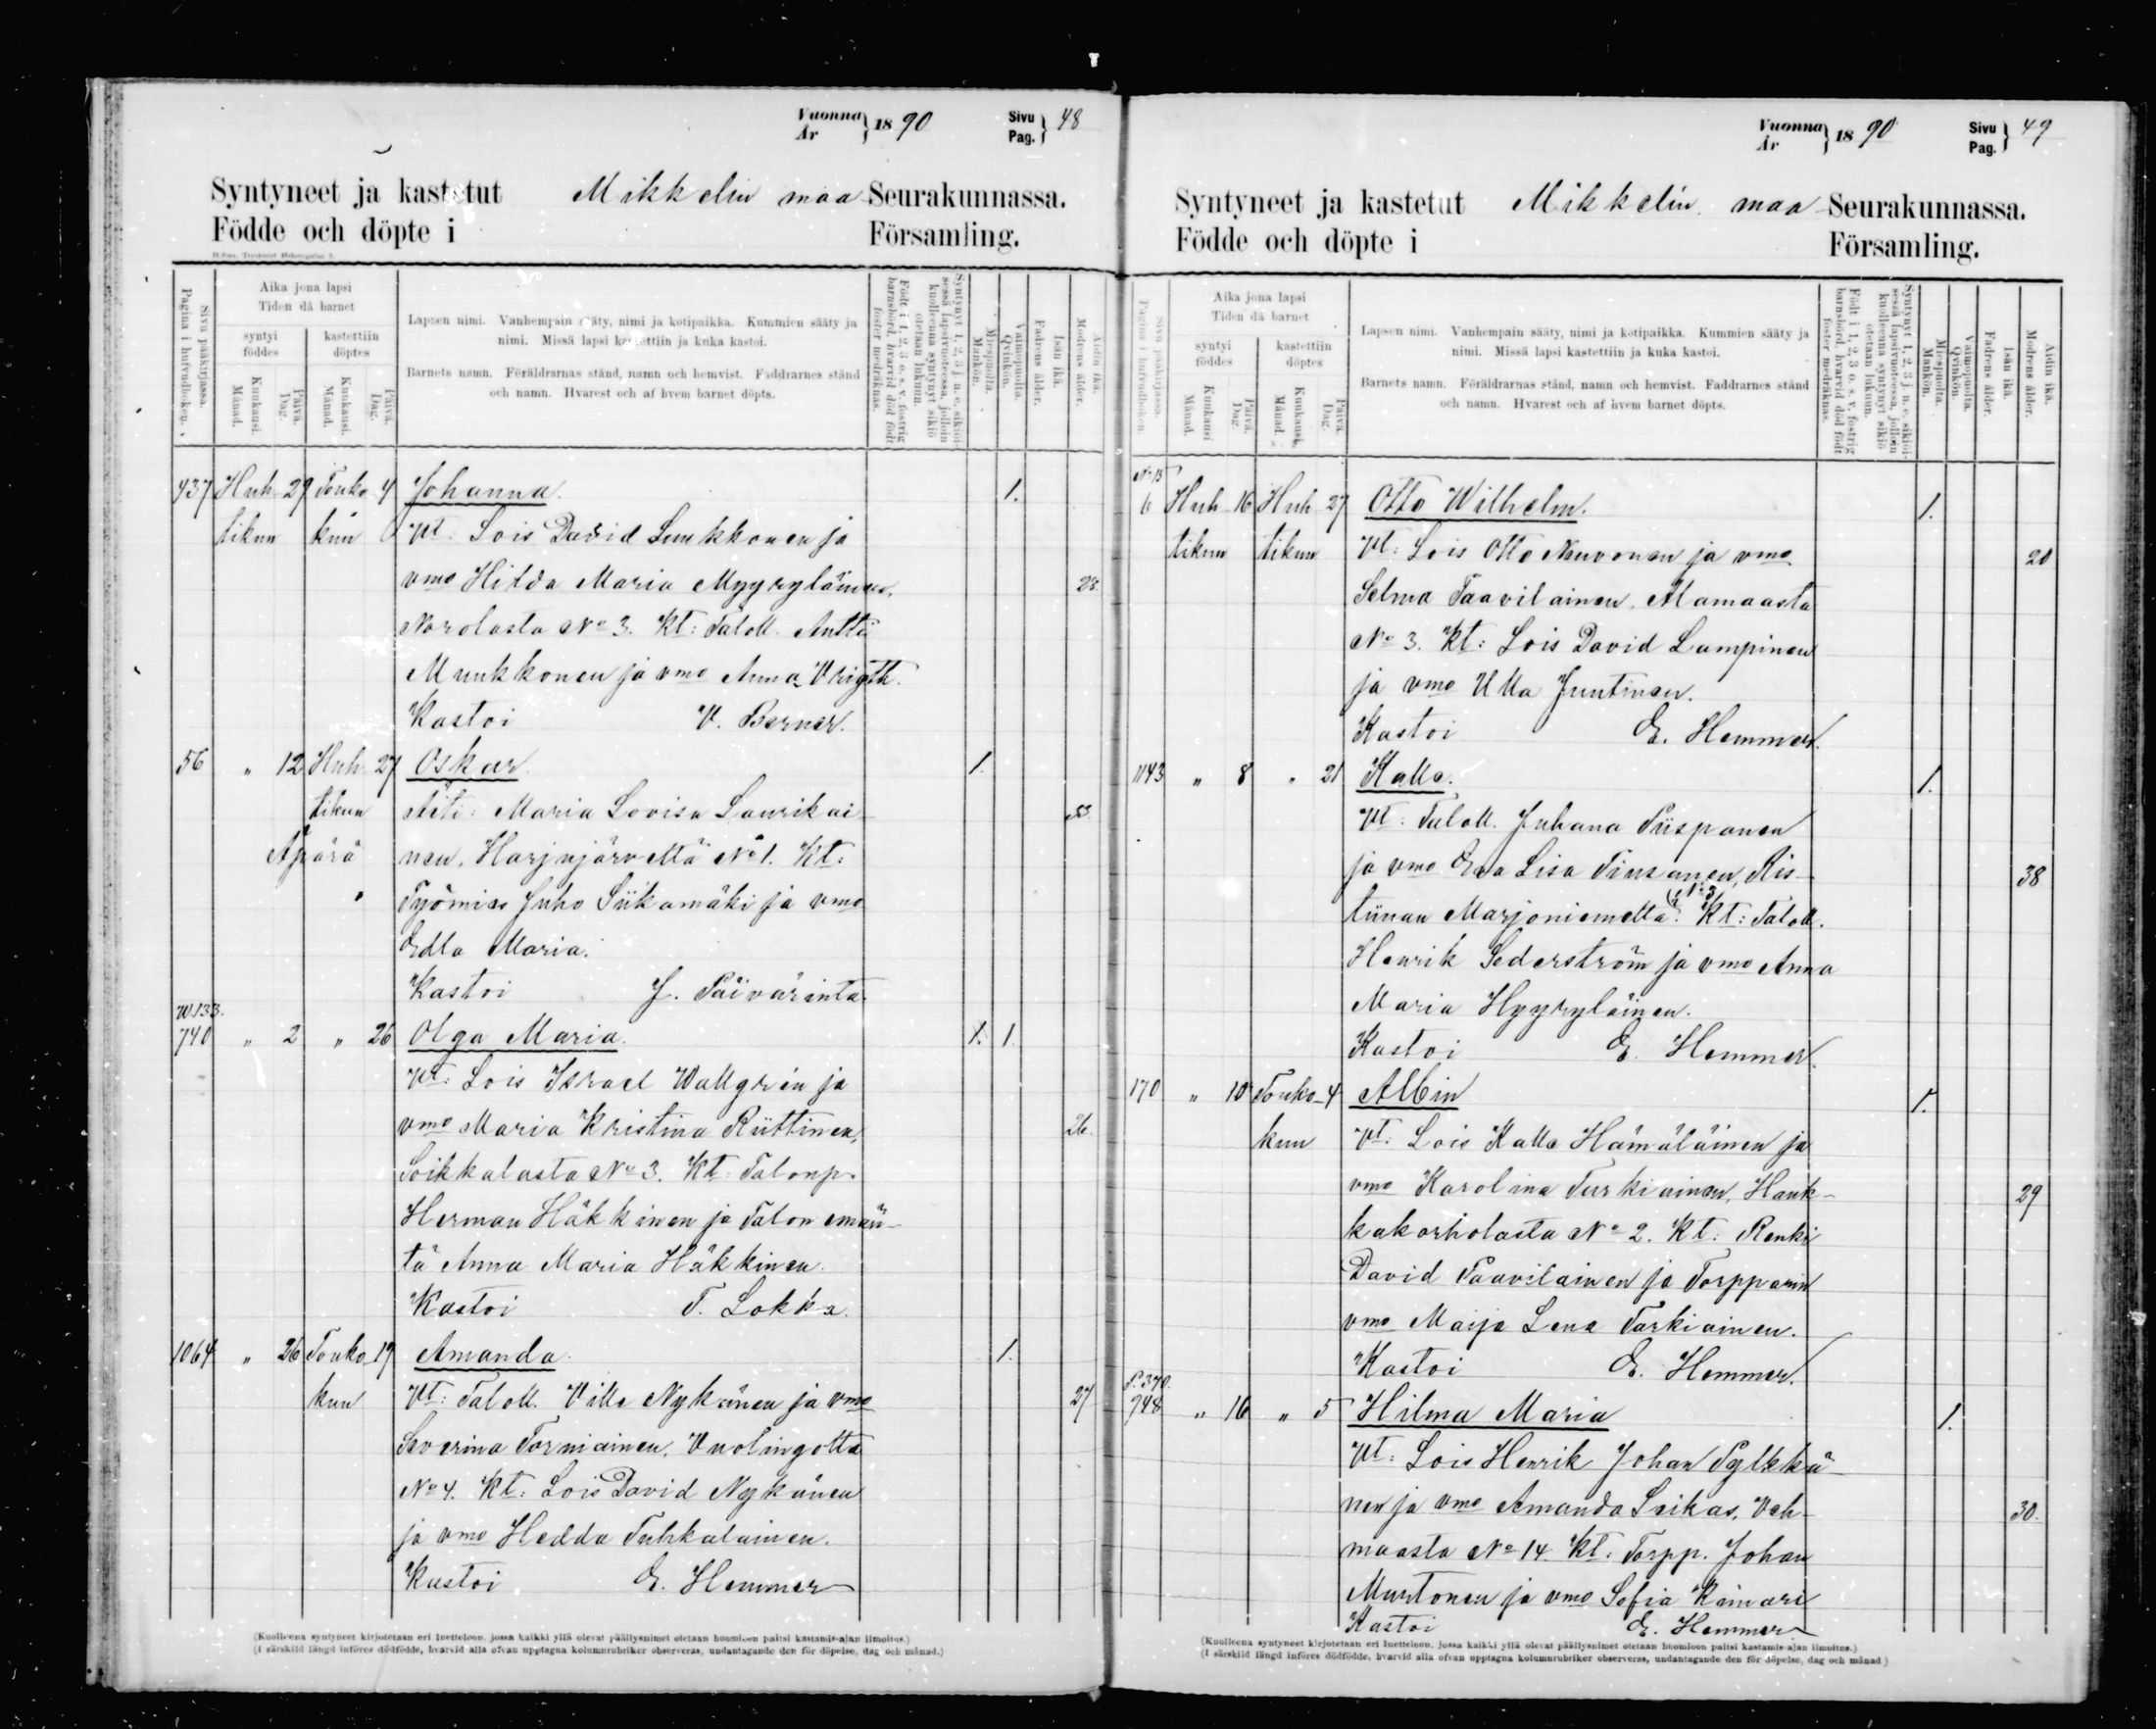 Vuonna
År } 1890 Sivu
Pag. } 48
Syntyneet ja kastetut Mikkelin maa Seurakunnassa.
Födde och döpte i Församling.
Sivu pääkirjassa.
Pagina i hufvudboken.
Aika jona lapsi
Tiden då barnet
syntyi
föddes
kastettiin
döptes
Kuukausi.
Månad.
Päivä.
Dag.
Kuukausi.
Månad.
Päivä.
Dag.
Lapsen nimi. Vanhempain sääty, nimi ja kotipaikka. Kummien sääty ja
nimi. Missä lapsi kastettiin ja kuka kastoi.
Barnets namn. Föräldrarnas stånd, namn och hemvist. Faddrarnes stånd
och namn. Hvarest och af hvem barnet döpts.
Syntynyt 1, 2, 3 j. n. e. sikiöi-
sessä lapsivuoteessa, jolloin
kuolleenna syntynyt sikiö
otetaan lukuun.
Född i 1, 2, 3 o. s. v. fostrig
barnsbörd, hvarvid död född
foster medräknas.
Miespuolta.
Mankön.
Vaimopuolta.
Qvinkön.
Isän ikä.
Fadrens ålder.
Äidin ikä.
Modrens ålder.
437 Huh- 29 Touko 4 Johanna. 1.
tikun kuu Vt: Lois David Luukkonen ja
vmo Hilda Maria Myyryläinen, 23.
Norolasta No 3. Kt: Taloll. Antti
Muukkonen ja vmo Anna
Kastoi V. Berner.
56 " 12 Huh- 27 Oskar. 1.
tikun Äiti: Maria Lovisa Laurikai
Äpärä nen, Harjujärveltä No 1. Kt:
Työmies Juho Siikamäki ja vmo
Edla Maria.
Kastoi J. Päivärinta.
W.133.
740 " 2 " 26 Olga Maria. 1. 1
Vt: Lois Israel Wallgrén ja
vmo Maria Kristina Riittinen, 26.
Soikkalasta No 3. Kt: Talonp.
Herman Häkkinen ja Talon emän-
tä Anna Maria Häkkinen.
Kastoi T. Lokka.
1064 " 26 Touko 17 Amanda. 1.
kuu Vt: Taloll. Ville Nykänen ja vmo 27
Severina Torniainen, Vuolingolta
No 4. Kt: Lois David Nykänen
ja vmo Hedda Tuhkalainen.
Kastoi E. Hemmer
(Kuolleena syntyneet kirjotetaan eri luetteloon, jossa kaikki yllä olevat päällysnimet otetaan huomioon paitsi kastamis-ajan ilmoitus.)
(I särskild längd införes dödfödde, hvarvid alla ofvan upptagna kolumnrubriker observeras, undantagande den för döpelse, dag och månad.)
Vuonna
År } 1890 Sivu
Pag. } 49
Syntyneet ja kastetut Mikkelin maa Seurakunnassa.
Födde och döpte i Församling.
Sivu pääkirjassa.
Pagina i hufvudboken.
Aika jona lapsi
Tiden då barnet
syntyi
föddes
kastettiin
döptes
Kuukausi
Månad.
Päivä.
Dag.
Kuukausi.
Månad.
Päivä.
Dag.
Lapsen nimi. Vanhempain sääty, nimi ja kotipaikka. Kummien sääty ja
nimi. Missä lapsi kastettiin ja kuka kastoi.
Barnets namn. Föräldrarnas stånd, namn och hemvist. Faddrarnes stånd
och namn. Hvarest och af hvem barnet döpts.
Syntynyt 1, 2, 3 j. n. e. sikiöi-
sessä lapsivuoteessa, jolloin
kuolleenna syntynyt sikiö
otetaan lukuun.
Född i 1, 2, 3 o. s. v. fostrig
barnsbörd, hvarvid död född
foster medräknas.
Miespuolta.
Mankön.
Vaimopuolta.
Qvinkön.
Isän ikä.
Fadrens ålder.
Äidin ikä.
Modrens ålder.
6 Huh- 16 Huh- 27 Otto Wilhelm. 1.
tikun tikun Vt: Lois Otto Neuvonen ja vmo 20
Selma Taavilainen, Alamaasta
No 3. Kt: Lois David Lampinen
ja vmo Ulla Juntinen.
Kastoi E. Hemmer.
1143 " 8 " 21 Kalle. 1.
Vt: Taloll. Juhana Piispanen
ja vmo Eva Lisa Tiusanen, Ris- 38
tiinan Marjoniemeltä No 3. Kt: Taloll.
Henrik Sederström ja vmo Anna
Maria Hyyryläinen.
Kastoi E. Hemmer.
170 " 10 Touko- 4 Albin 1.
kuu Vt: Lois Kalle Hämäläinen ja
vmo Karolina Turkiainen, Hauk- 29
kakorholasta No 2. Kt: Renki
David Paavilainen ja Torpparin
vmo Maija Lena Tarkiainen.
Kastoi E. Hemmer.
P. 370.
948 " 16 " 5 Hilma Maria 1.
Vt: Lois Henrik Johan Pylkkä-
nen ja vmo Amanda Leikas, Veh- 30.
maasta No 14. Kt: Torpp. Johan
Murtonen ja vmo Sofia Kämäri
Kastoi E. Hemmer
(Kuolleena syntyneet kirjotetaan eri luetteloon, jossa kaikki yllä olevat päällysnimet otetaan huomioon paitsi kastamis-ajan ilmoitus.)
(I särskild längd införes dödfödde, hvarvid alla ofvan upptagna kolumnrubriker observeras, undantagande den för döpelse, dag och månad.)